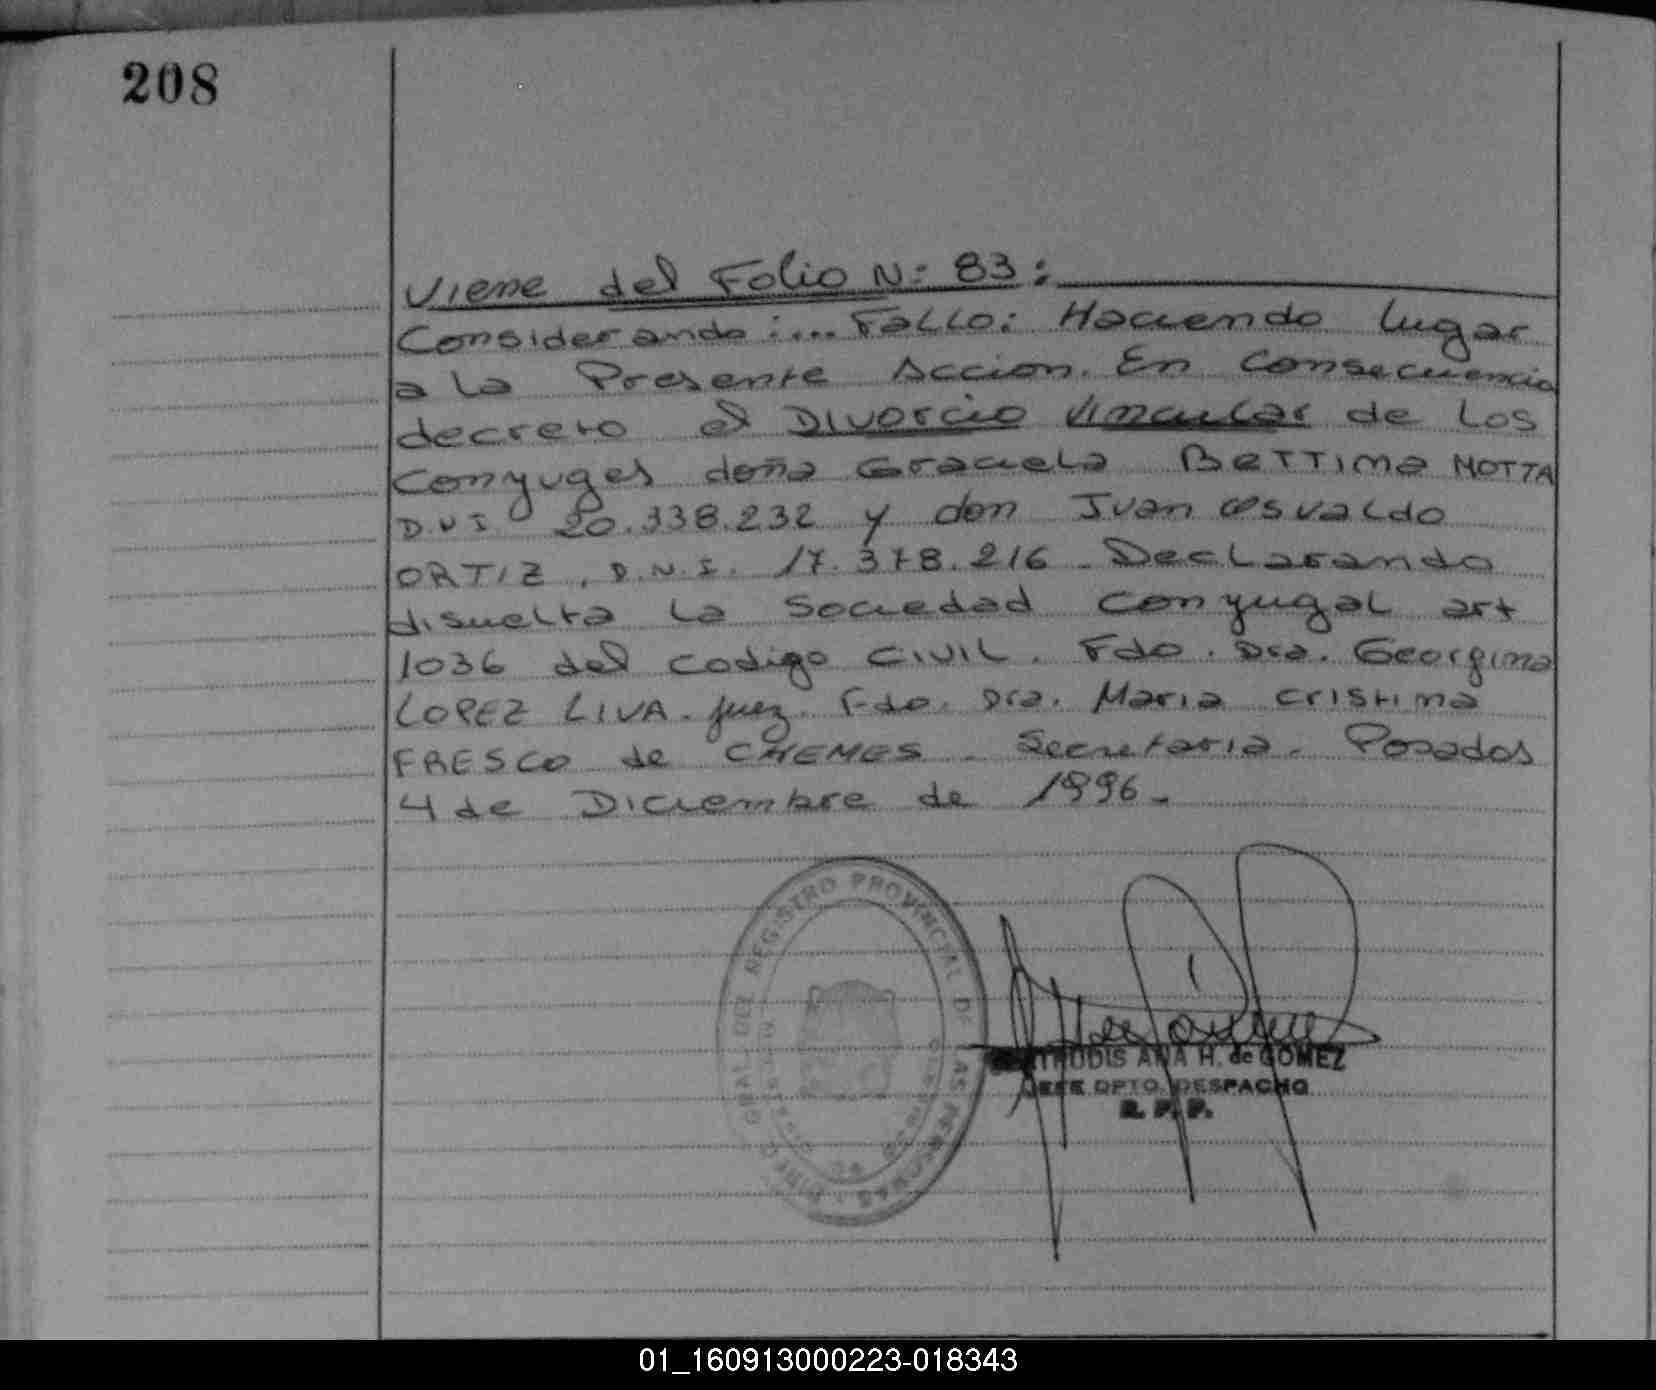 208
Viene del Folio N: 83:
Considerando:... Fallo: Haciendo lugar
a la Presente Accion. En consecuencia
decreto el Divorcio Vincular de los
Conyuges doña Graciela Bettina MOTTA
D.N.I. 20.338.232 y don Juan Osvaldo
ORTIZ, D.N.I. 17.378.216 - Declarando
disuelta la Sociedad Conyugal art
1036 del Codigo CIVIL. Fdo. Dra. Georgina
LOPEZ LIVA. juez. Fdo. Dra. Maria Cristina
FRESCO de CHEMES - Secretaria. Posadas
4 de Diciembre de 1996.-
GRAL. DEL REGISTRO PROVINCIAL DE LAS PERSONAS
ANA H. de GOMEZ
JEFE DPTO. DESPACHO
R. P. P.
01_160913000223-018343